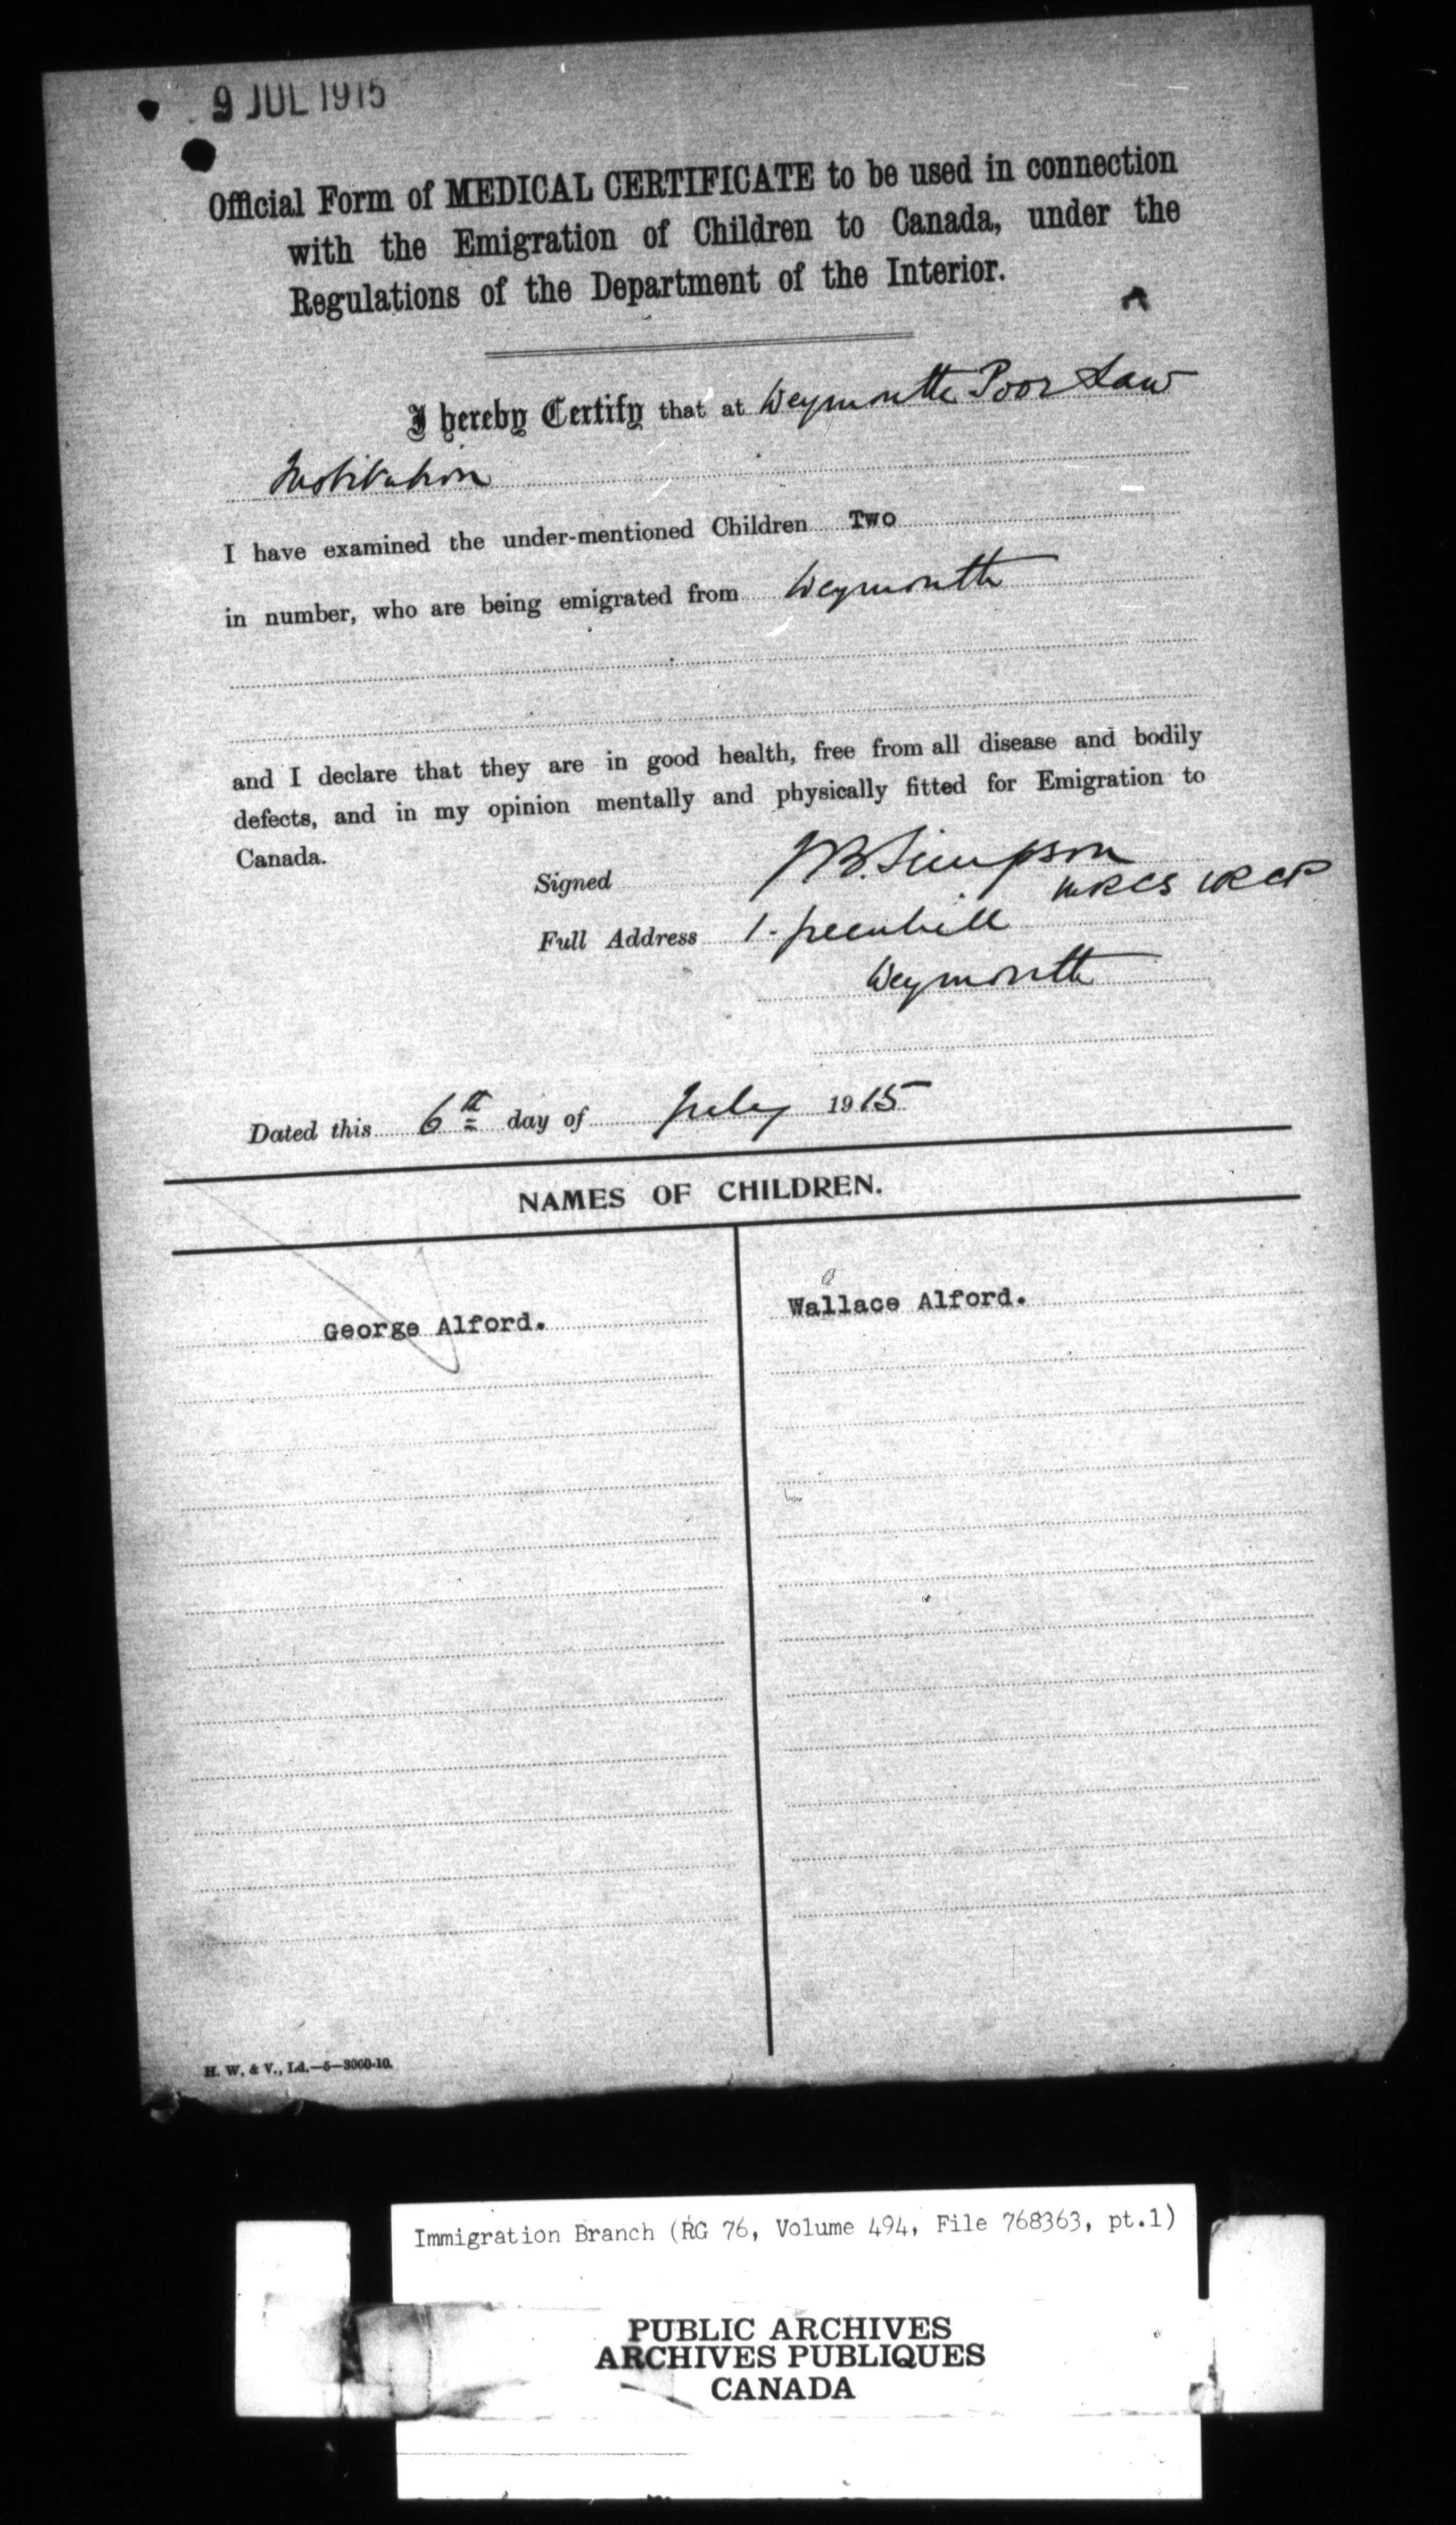 9 JUL 1915
Official Form of MEDICAL CERTIFICATE to be used in connection
with the Emigration of Children to Canada, under the
Regulations of the Department of the Interior.
I hereby Certify that at Weymouth Poor Law
Institution
I have examined the under-mentioned Children Two
in number, who are being emigrated from Weymouth
and I declare that they are in good health, free from all disease and bodily
defects, and in my opinion mentally and physically fitted for Emigration to
Canada.
Signed JB. Simpson
MRCS LRCP
Full Address 1. Greenhill
Weymouth
Dated this 6th day of July 1915
NAMES OF CHILDREN.
George Alford.
Wallace Alford.
H. W. & V., Ld.—5—3000-10.
Immigration Branch (RG 76, Volume 494, File 768363, pt.1)
PUBLIC ARCHIVES
ARCHIVES PUBLIQUES
CANADA